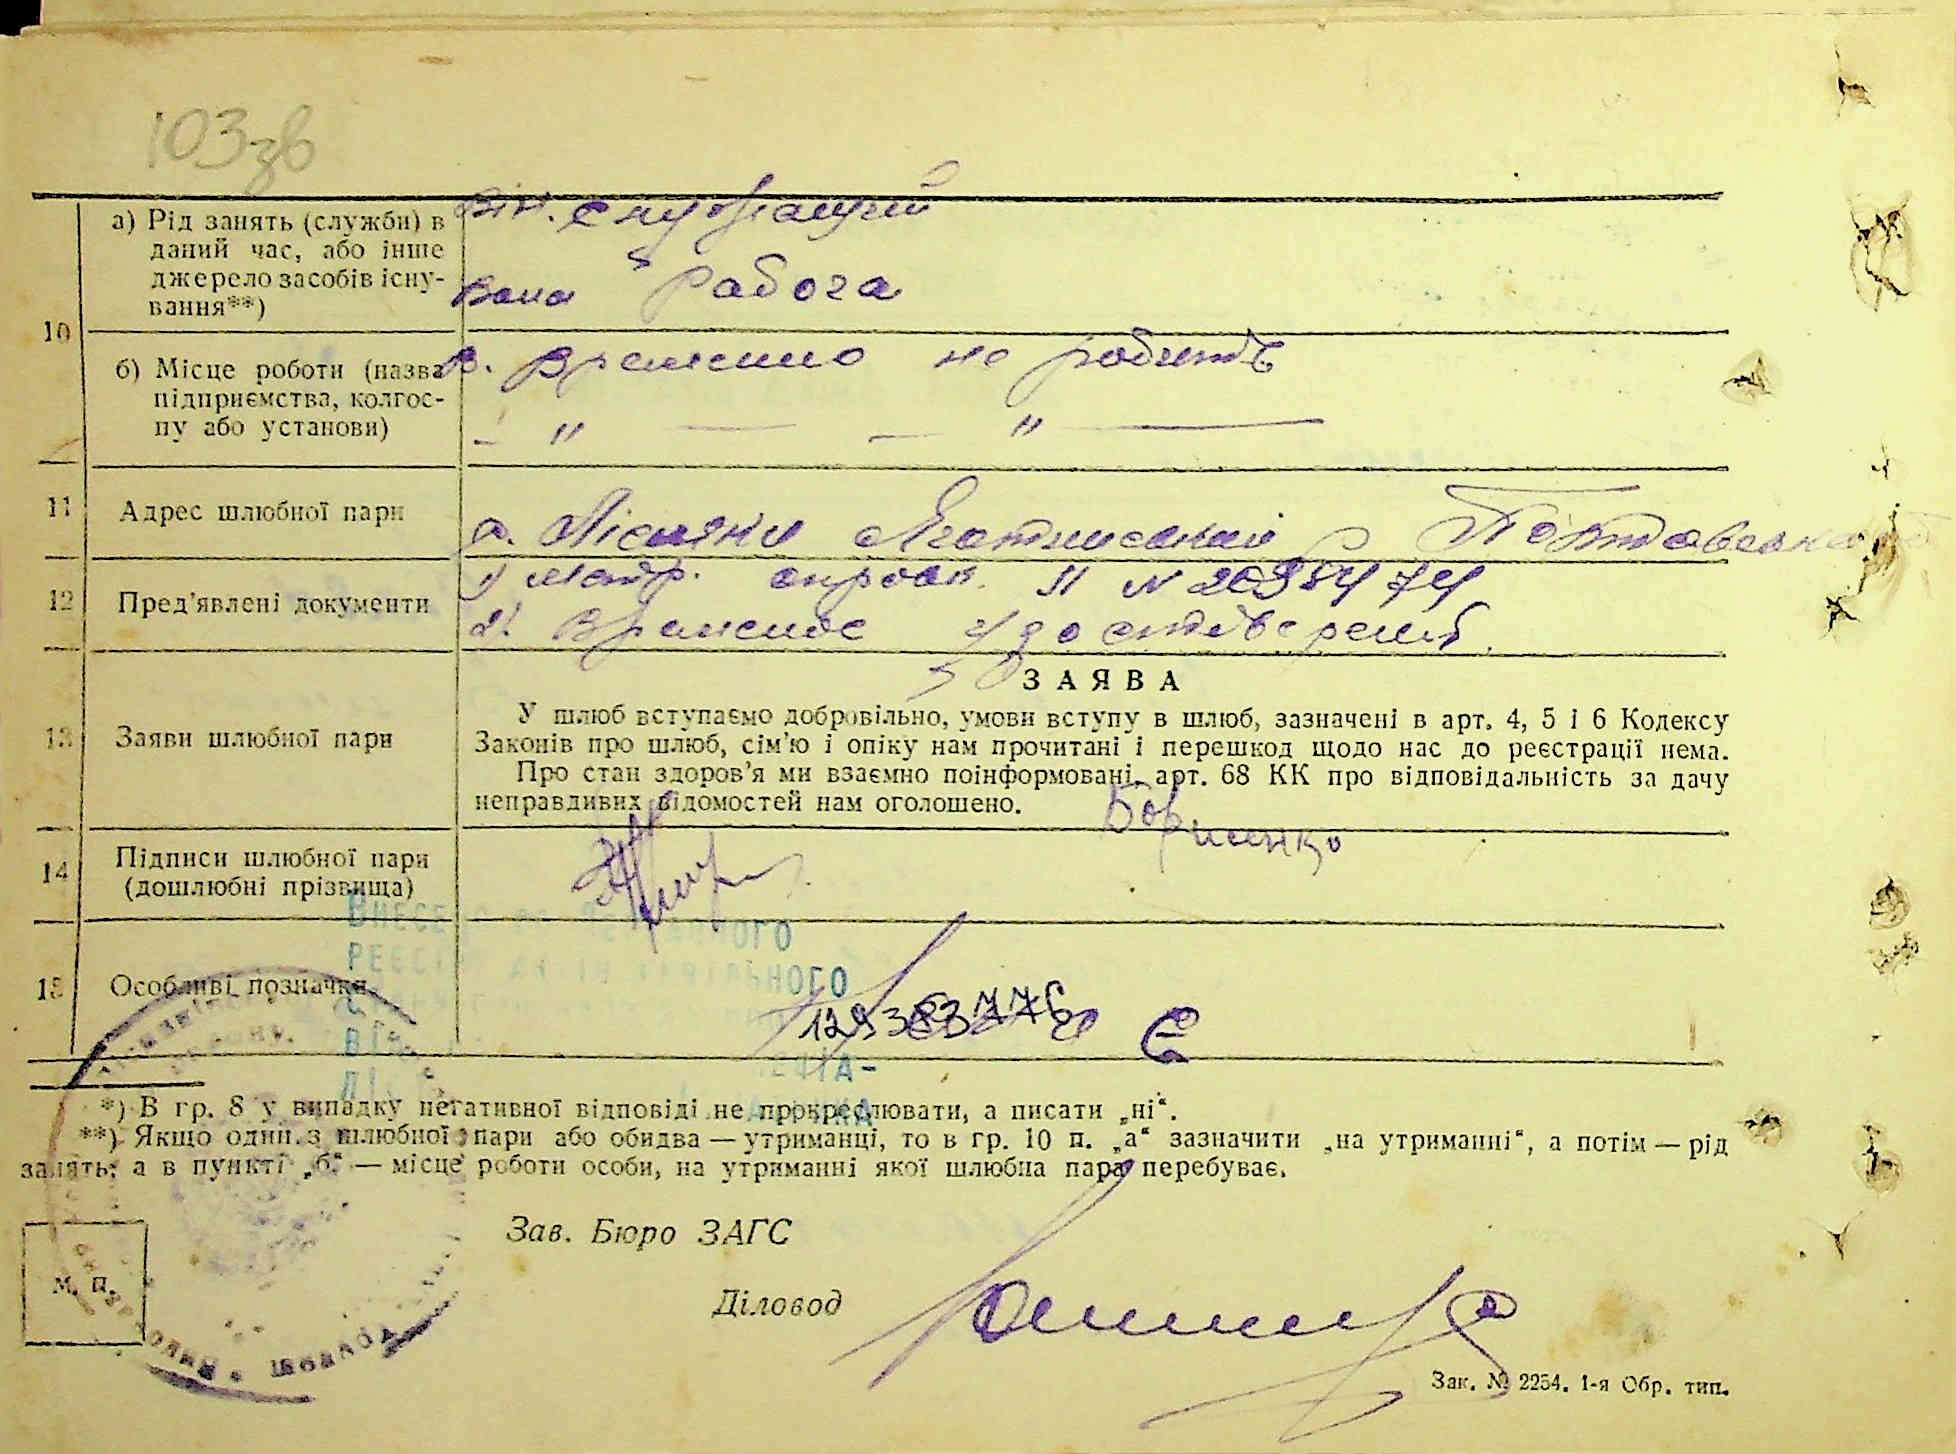 103зв
а) Рід занять (служби) в даний час, або інше джерело засобів існування**)
Він. служащий
Вона Рабоча
10
б) Місце роботи (назва підприємства, колгоспу або установи)
В. Временно не робить
— " — — " —
11 Адрес шлюбної пари
Яготинский Полтавська
12 Пред'явлені документи
1)
2). Временое удостовірения
13 Заяви шлюбної пари
ЗАЯВА
У шлюб вступаємо добровільно, умови вступу в шлюб, зазначені в арт. 4, 5 і 6 Кодексу
Законів про шлюб, сім'ю і опіку нам прочитані і перешкод щодо нас до реєстрації нема.
Про стан здоров'я ми взаємно поінформовані, арт. 68 КК про відповідальність за дачу
неправдивих відомостей нам оголошено.
14 Підписи шлюбної пари
(дошлюбні прізвища)
Борисенко
15 Особливі позначки
*) В гр. 8 у випадку негативної відповіді не прокреслювати, а писати „ні“.
**) Якщо один з шлюбної пари або обидва — утриманці, то в гр. 10 п. „а“ зазначити „на утриманні“, а потім — рід
занять; а в пункті „б“ — місце роботи особи, на утриманні якої шлюбна пара перебуває.
Зав. Бюро ЗАГС
м. п.
Діловод
Зак. № 2254. 1-я Обр. тип.